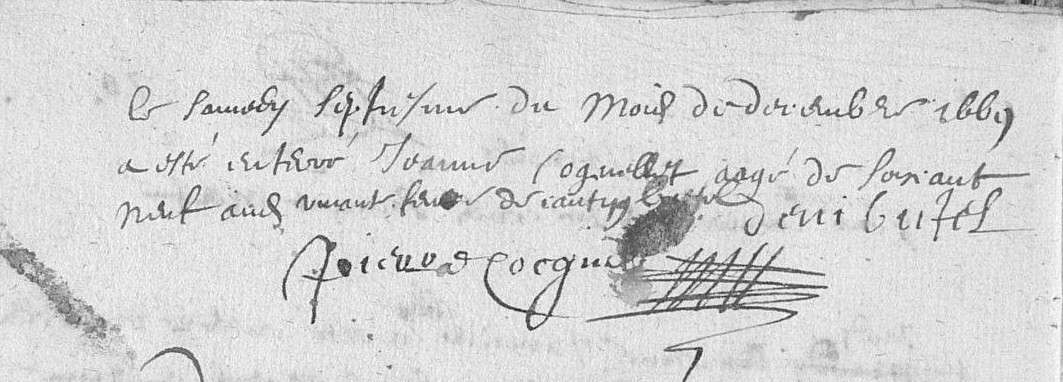 le samedy septiesme du mois de decembre 1669
a esté enterré Jeanne Coquellet aagé de soixant
neuf ans vivant femme de
deni butel
Pierre Cocquel